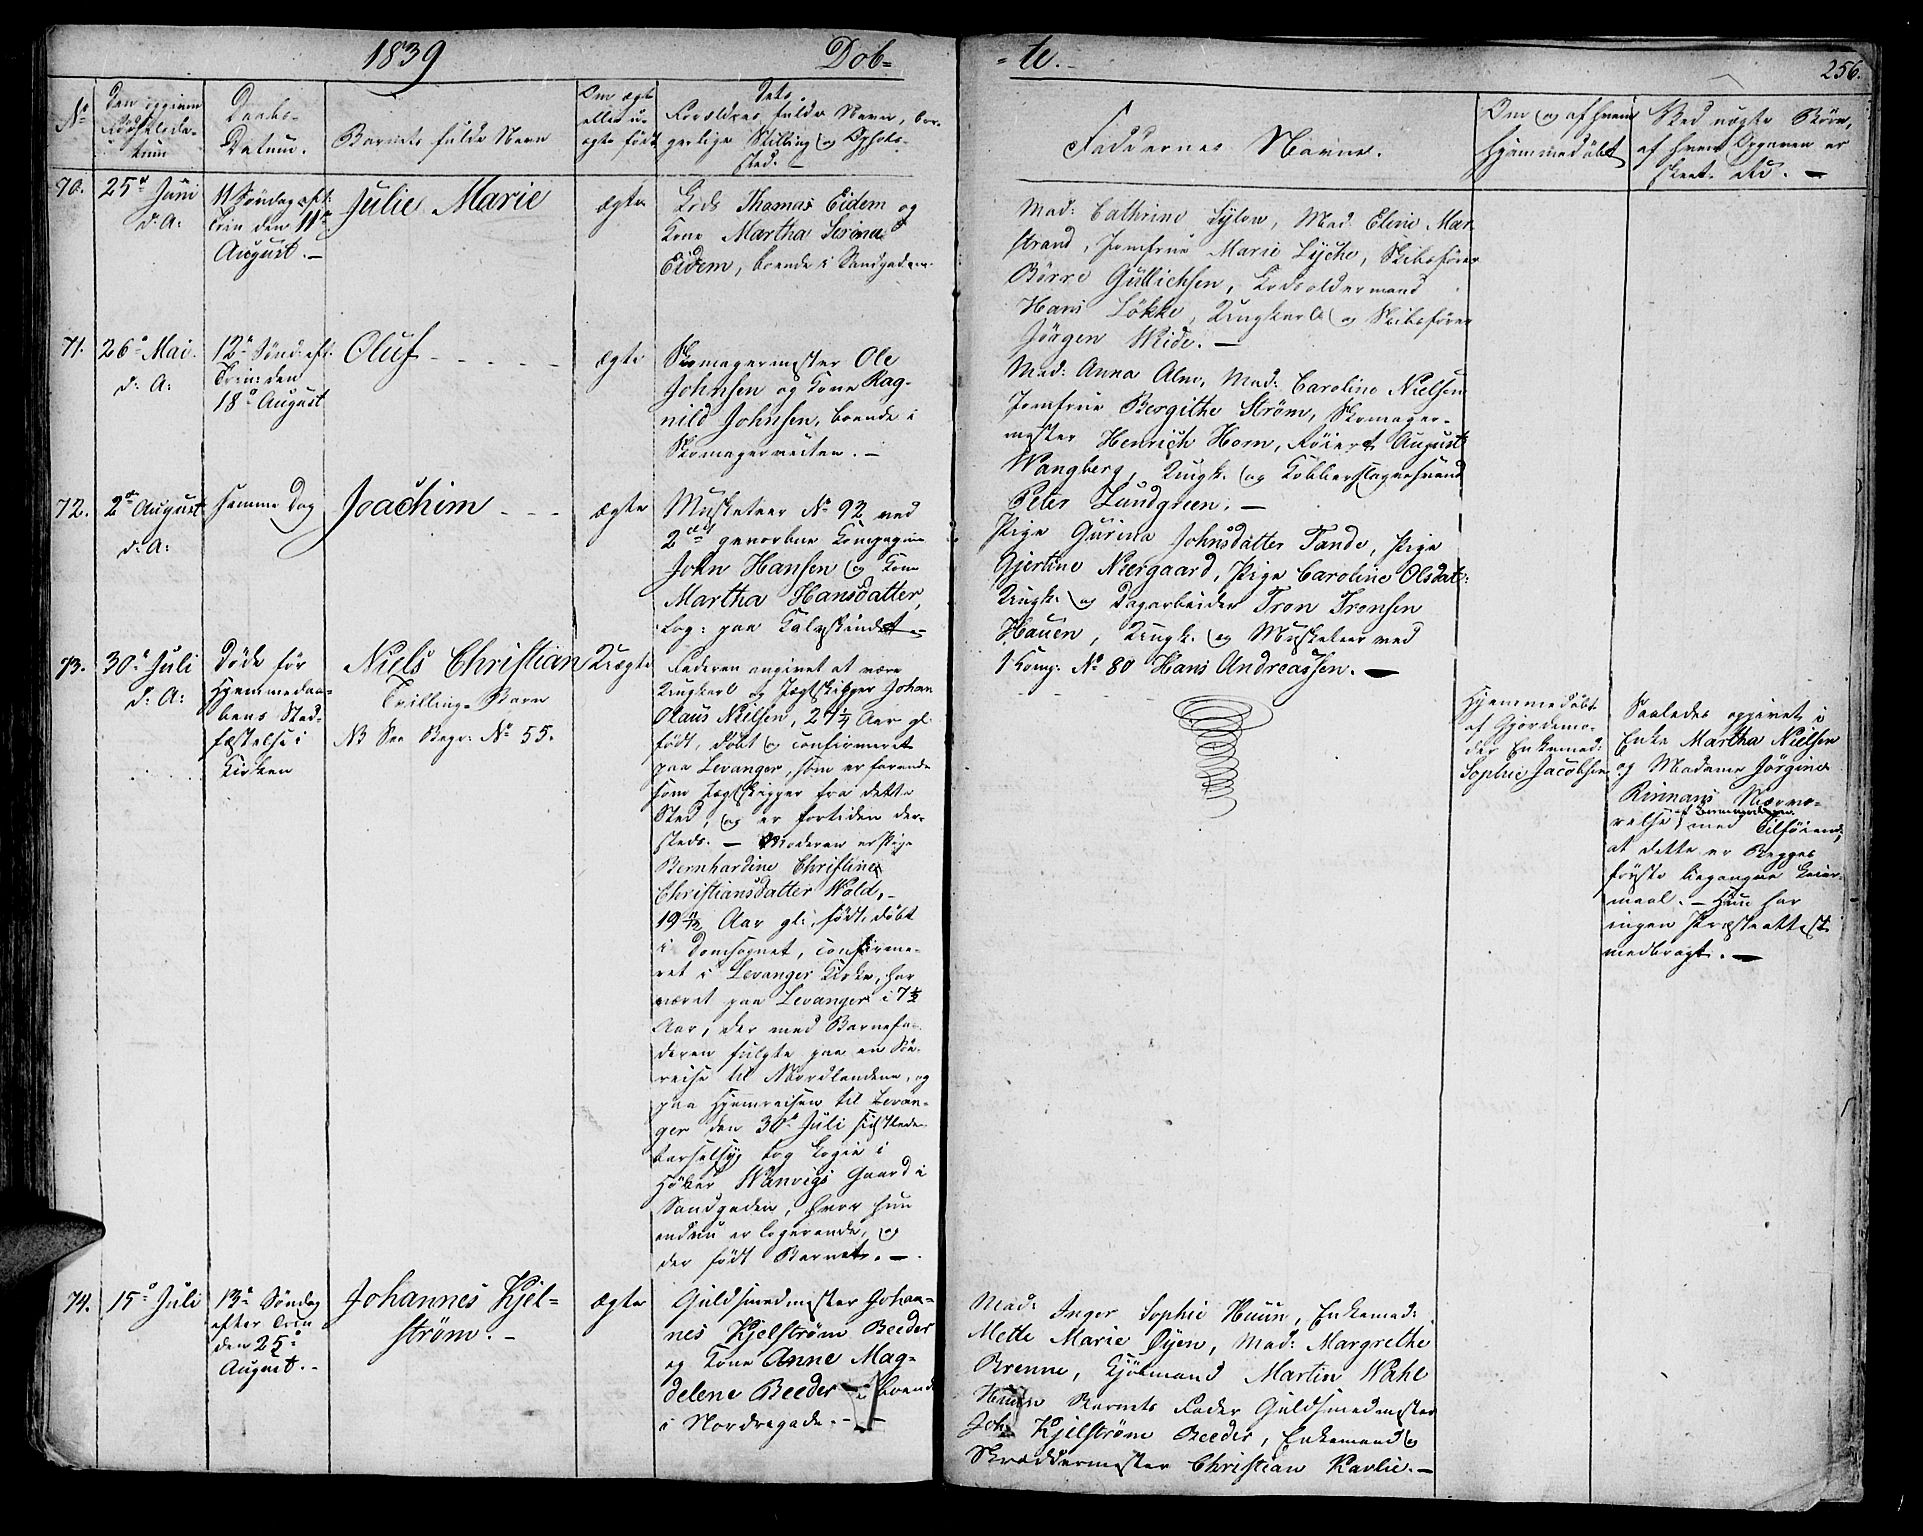 1839 Døb-
-te. 256.
No Den opgivne Fødselsda-
tum
Daabs-
Datum.
Barnets fulde Navn
Om ægte
eller u-
ægte født
Dets
Forældres fulde Navn, bor-
gerlige Stilling og Opholds-
sted.
Faddernes Navne.
Om og af hvem
hjemmedøbt
Ved uægte Børn,
af hvem Opgaven er
skeet
70. 25de Juni
d: A:
11 Søndag eft:
Trin den 11te
August.
Julie Marie
ægte
Lods Thomas Eidem og
Kone Martha Serina
Eidem, boende i Sandgaden.
Mad: Cathrine Sylow, Mad. Eline Mar
strand, Jomfrue Marie Lyche, Skibsfører
Børre Gullichsen, Lodsoldermand
Hans Løkke, Ungkarl og Skibsfører
Jörgen Wide.
71. 26de Mai.
d: A:
12te Sønd: eft:
Trin: den
18de August
Oluf
ægte
Skomagermester Ole
Johnsen og Kone Rag-
nild Johnsen, boende i
Skomagerveiten.
Mad: Anna Alm, Mad: Caroline Nielsen
Jomfrue Bergithe Strøm, Skomager-
mester Henrich Horn, August
Wangberg, Ungk. og Kobberslagersvend
Peter Lundgreen.
72. 2den August
d: A:
samme Dag
Joachim
ægte
Musketeer No 92 ved
2det gevorbne Compagnie
John Hansen og Kone
Martha Hansdatter,
log: paa Kalvskindet
Pige Gurina Johnsdatter Tande, Pige
Gjertine Neergaard, Pige Caroline Olsdat:
Ungk. og Dagarbeider Tron Tronsen
Hauen, Ungk. og Musketeer ved
1 Komp. No 80 Hans Andreassen.
73. 30te Juli
d: A:
Døde før
Hjemmedaa-
bens Stad-
fæstelse i
Kirken
Niels Christian
Tvilling-Barn
NB See Begr: No 55.
Uægte
Faderen angivet at være
Ungkarl og Jægtskipper Johan
Olaus Nielsen, 27 1/4 Aar gl:
født, døbt og confirmeret
paa Levanger, som er farende
som Jægtskipper fra dette
Sted, og er fortiden der-
steds. Moderen er Pige
Bernhardine Christine
Christiansdatter Wold,
19 Aar gl:, født, døbt
i Domsognet, confirme-
ret i Levanger Kirke, har
været paa Levanger i 7 1/2
Aar, der med Barnefa-
deren fulgte paa en Søe-
reise til Nordlandene, og
paa Hjemreisen til Levan-
ger den 30te Juli sidstleden
barselsyg tog Logie i
Høker Wanvigs Gaard i
Sandgaden, hvor hun
endnu er logerende, og
der født Barnet.
Hjemmedøbt
af Gjordemo-
der Enkemad:
Sophie Jacobsen
Saaledes opgivet i
Enke Martha Nielsen
og Madame Jörgine
Rinnans Nærvæ-
relse af Barnemoderen med Tilføiende,
at dette er Begges
første begangne Leier-
maal. Hun har
ingen Præsteattest
medbragt.
74. 15de Juli
13de Søndag
efter Trin
den 25de
August.
Johannes Kjel-
strøm.
ægte
Guldsmedmester Johan-
nes Kjelstrøm Beeder
og Kone Anne Mag-
delene Beeder boende
i Nordregade.
Mad: Inger Sophie Huun, Enkemad:
Mette Marie Øyen, Mad: Margrethe
Brenne, Kjøbmand Martin Wahl
Huun Barnets Fader Guldsmedmester
Joh: Kjelstrøm Beeder, Enkemand og
Skræddermester Christian Ravlie.